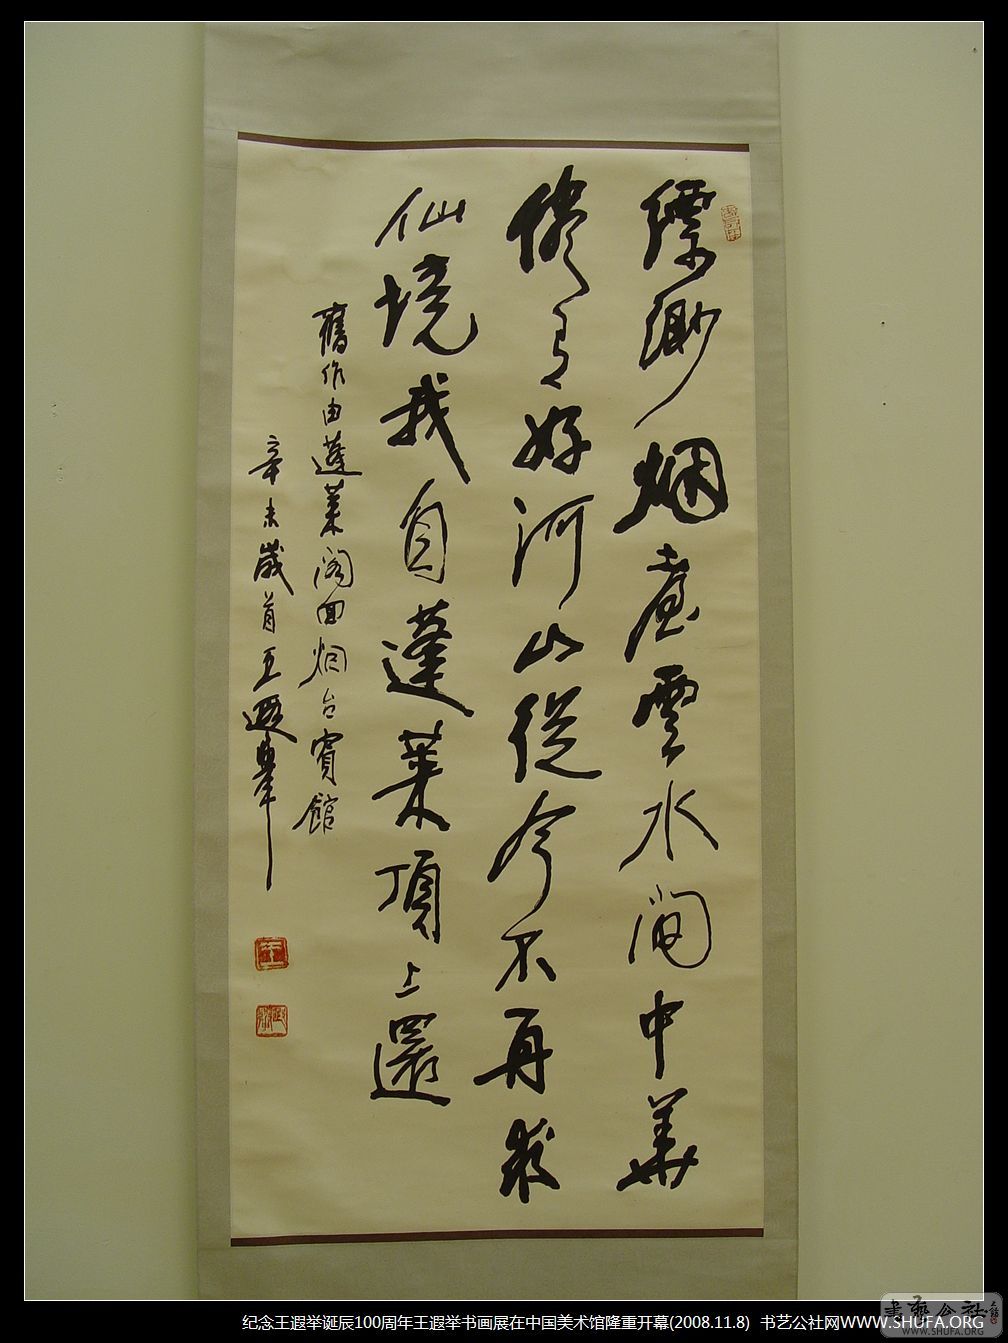 缥缈烟台云水间中华
尽有好河山从今不再求
仙境我自蓬莱顶上还
旧作由蓬莱阁回烟台宾馆
辛未岁首王遐举
纪念王遐举诞辰100周年王遐举书画展在中国美术馆隆重开幕(2008.11.8) 书艺公社网WWW.SHUFA.ORG
书艺公社
WWW.SHUFA.ORG